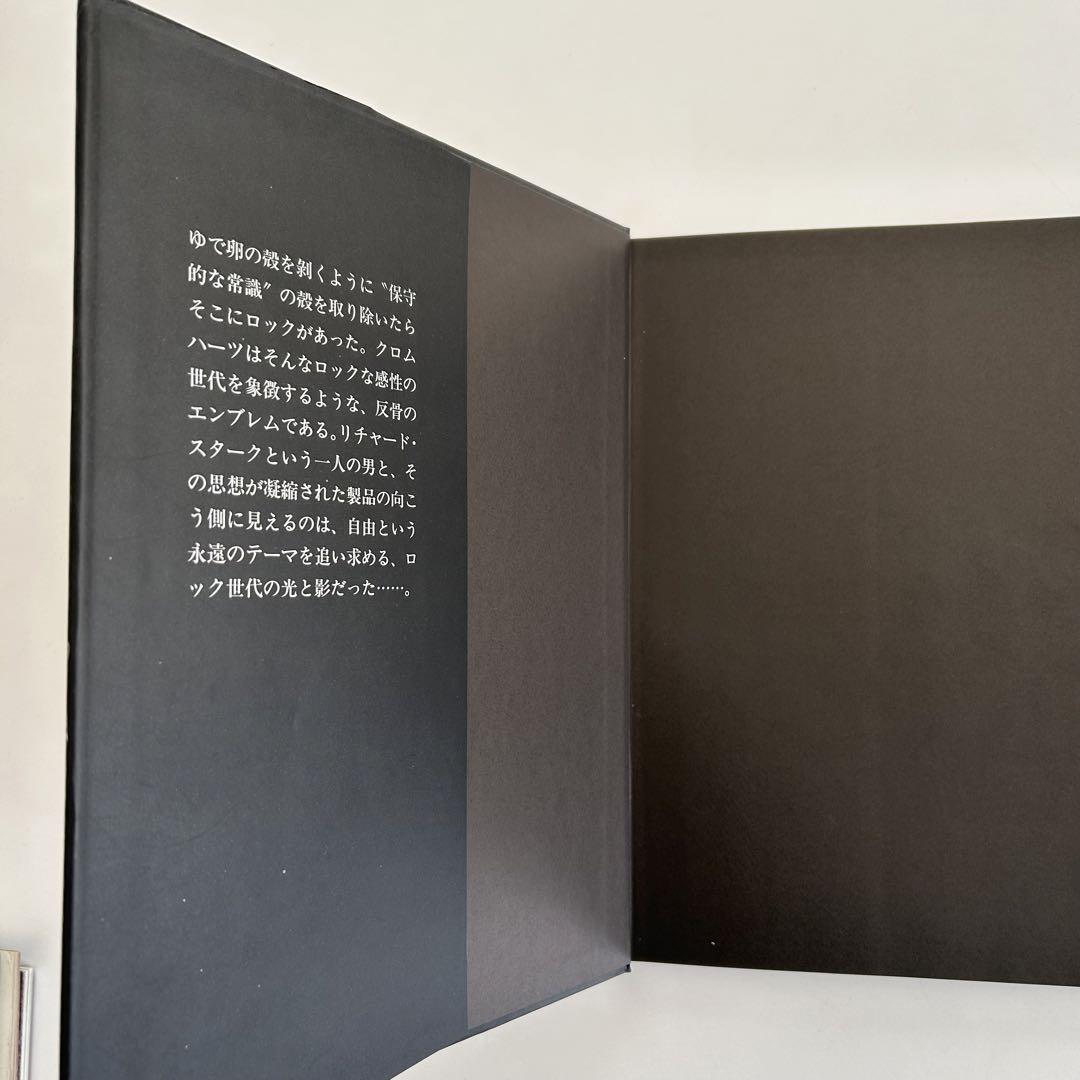 ゆで卵の殻を剝くように〝保守
的な常識〟の殻を取り除いたら
そこにロックがあった。クロム
ハーツはそんなロックな感性の
世代を象徴するような、反骨の
エンブレムである。リチャード・
スタークという一人の男と、そ
の思想が凝縮された製品の向こ
う側に見えるのは、自由という
永遠のテーマを追い求める、ロ
ック世代の光と影だった……。